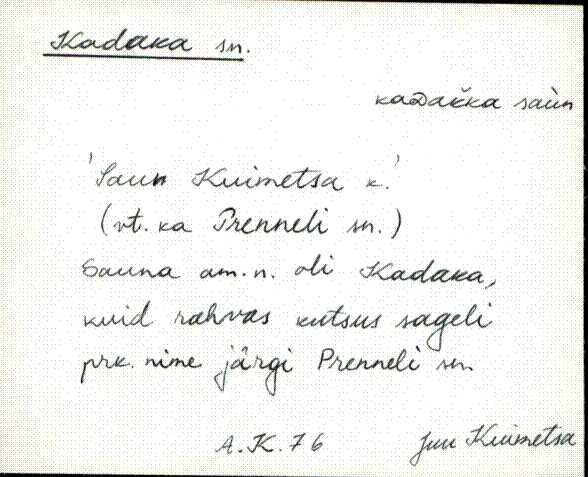 Kadaka sn.
kaᴅak̆ka saùn
'Saun Kuimetsa k.'
(vt. ka Prenneli sn.)
Sauna am.n. oli Kadaka,
kuid rahvas kutsus sageli
prk. nime järgi Prenneli sn.
A.K.76 Juu Kuimetsa